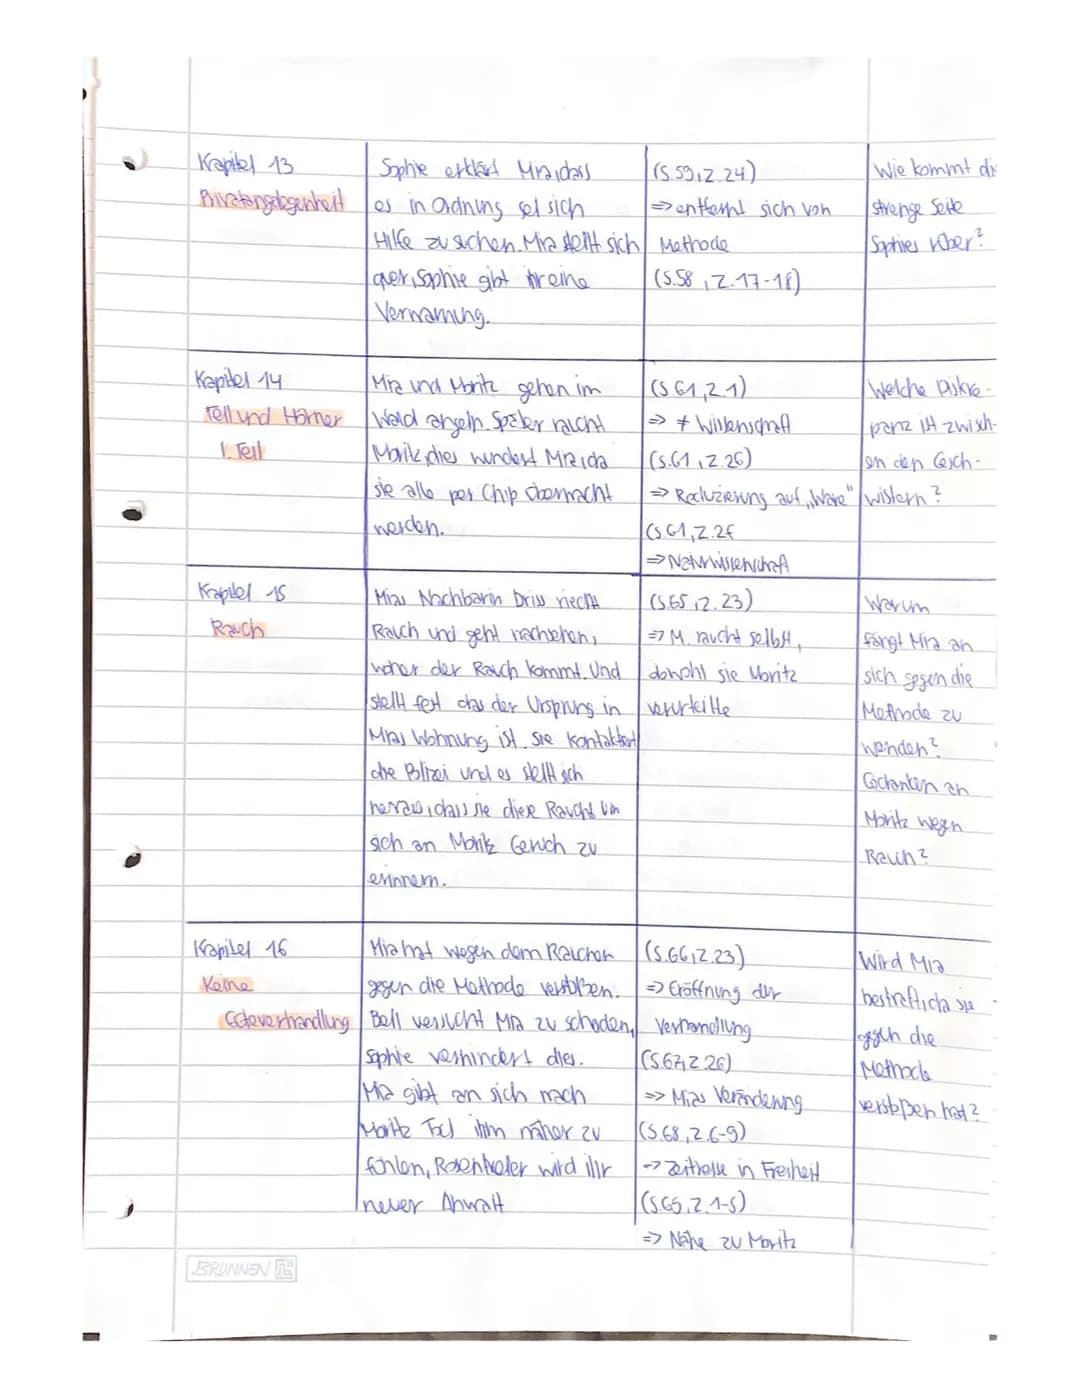 Kapitel 13
Privatangelegenheit
Sophie erklärt Mia, dass
es in Ordnung sei sich
Hilfe zu suchen. Mia stellt sich
quer, Sophie gibt ihr eine
Verwarnung.
(S.59, Z.24)
=> entfernt sich von
Methode
(S.58, Z.17-18)
Wie kommt die
strenge Seite
Sophies rüber?
Kapitel 14
Fell und Hörner
1. Teil
Mia und Moritz gehen im
Wald angeln. Später raucht
Moritz, dies wundert Mia, da
sie alle per Chip überwacht
werden.
(S.61, Z.1)
=> ≠ Wissenschaft
(S.61, Z.26)
=> Reduzierung auf „Ware"
(S.61, Z.2f
=> Naturwissenschaft
Welche Diskre-
panz ist zwisch-
en den Gesch-
wistern?
Kapitel 15
Rauch
Mias Nachbarin Driss riecht
Rauch und geht nachsehen,
woher der Rauch kommt. Und
stellt fest das der Ursprung in
Mias Wohnung ist. Sie kontaktiert
die Polizei und es stellt sich
heraus, dass sie diese Raucht um
sich an Moritz Geruch zu
erinnern.
(S.65, Z.23)
=> M. raucht selbst,
obwohl sie Moritz
verurteilte
Warum
fängt Mia an
sich gegen die
Methode zu
wenden?
Gedanken an
Moritz wegen
Rauch?
Kapitel 16
Keine
Güteverhandlung
Mia hat wegen dem Rauchen
gegen die Methode verstoßen.
Bell versucht Mia zu schaden,
Sophie verhindert dies.
Mia gibt an sich nach
Moritz Tod ihm näher zu
fühlen, Rosentreter wird ihr
neuer Anwalt
(S.66, Z.23)
=> Eröffnung der
Verhandlung
(S.67, Z.26)
=> Mias Veränderung
(S.68, Z.6-9)
-> Zeitreise in Freiheit
(S.65, Z.1-5)
=> Nähe zu Moritz
Wird Mia
bestraft, da sie
gegen die
Methode
verstoßen hat?
BRUNNEN